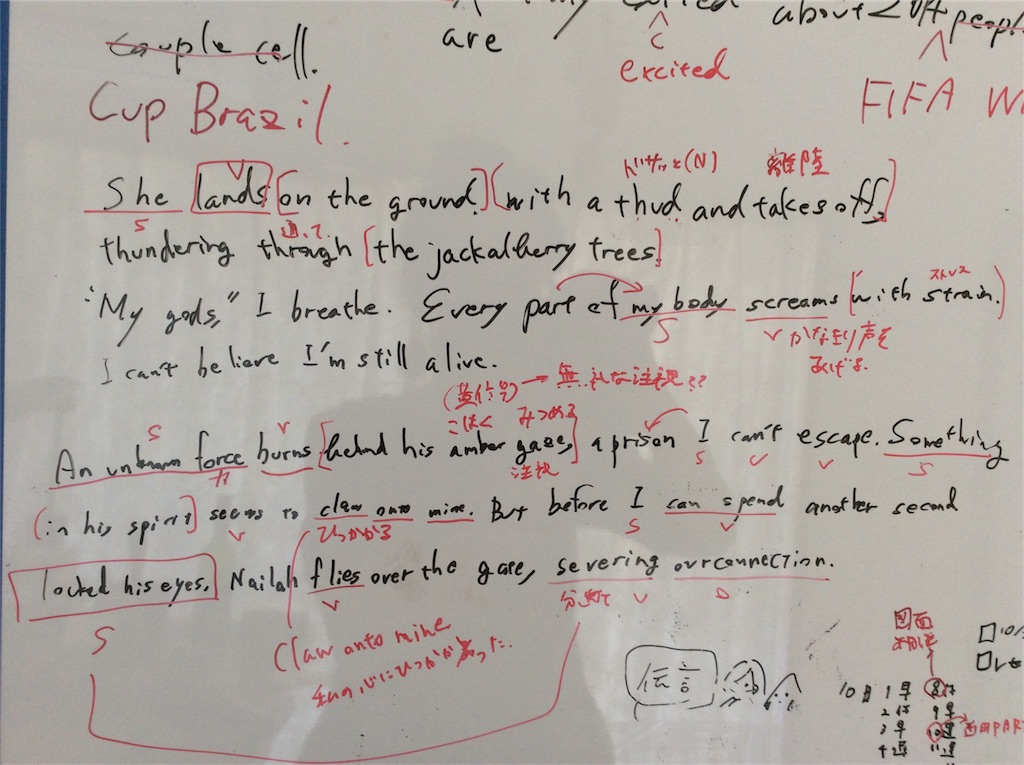 are
excited
about
people
Couple cell.
Cup Brazil.
FIFA W
ドサッと(N) 離陸
She lands on the ground. with a thud. and takes off,
S V 通って
thundering through the jackalberry trees
"My gods," I breathe. Every part of my body screams with strain.
ストレス
S V かなきり声を
あげる.
I can't believe I'm still alive.
(黄信号) → 無礼な注視??
こはく みつめる
S V
An unknown force burns behind his amber gaze, a prison I can't escape. Something
力 注視 S V V S
(in his spirit) seems to claw onto mine. But before I can spend another second
V ひっかかる S V
locked his eyes. Nailah flies over the gate, severing our connection.
S V 分断して V O
Claw onto mine
私の心にひっかかあった.
伝言
図面
10月 1早 8
2 9早
3早 10 西田PAR
4 11
10/